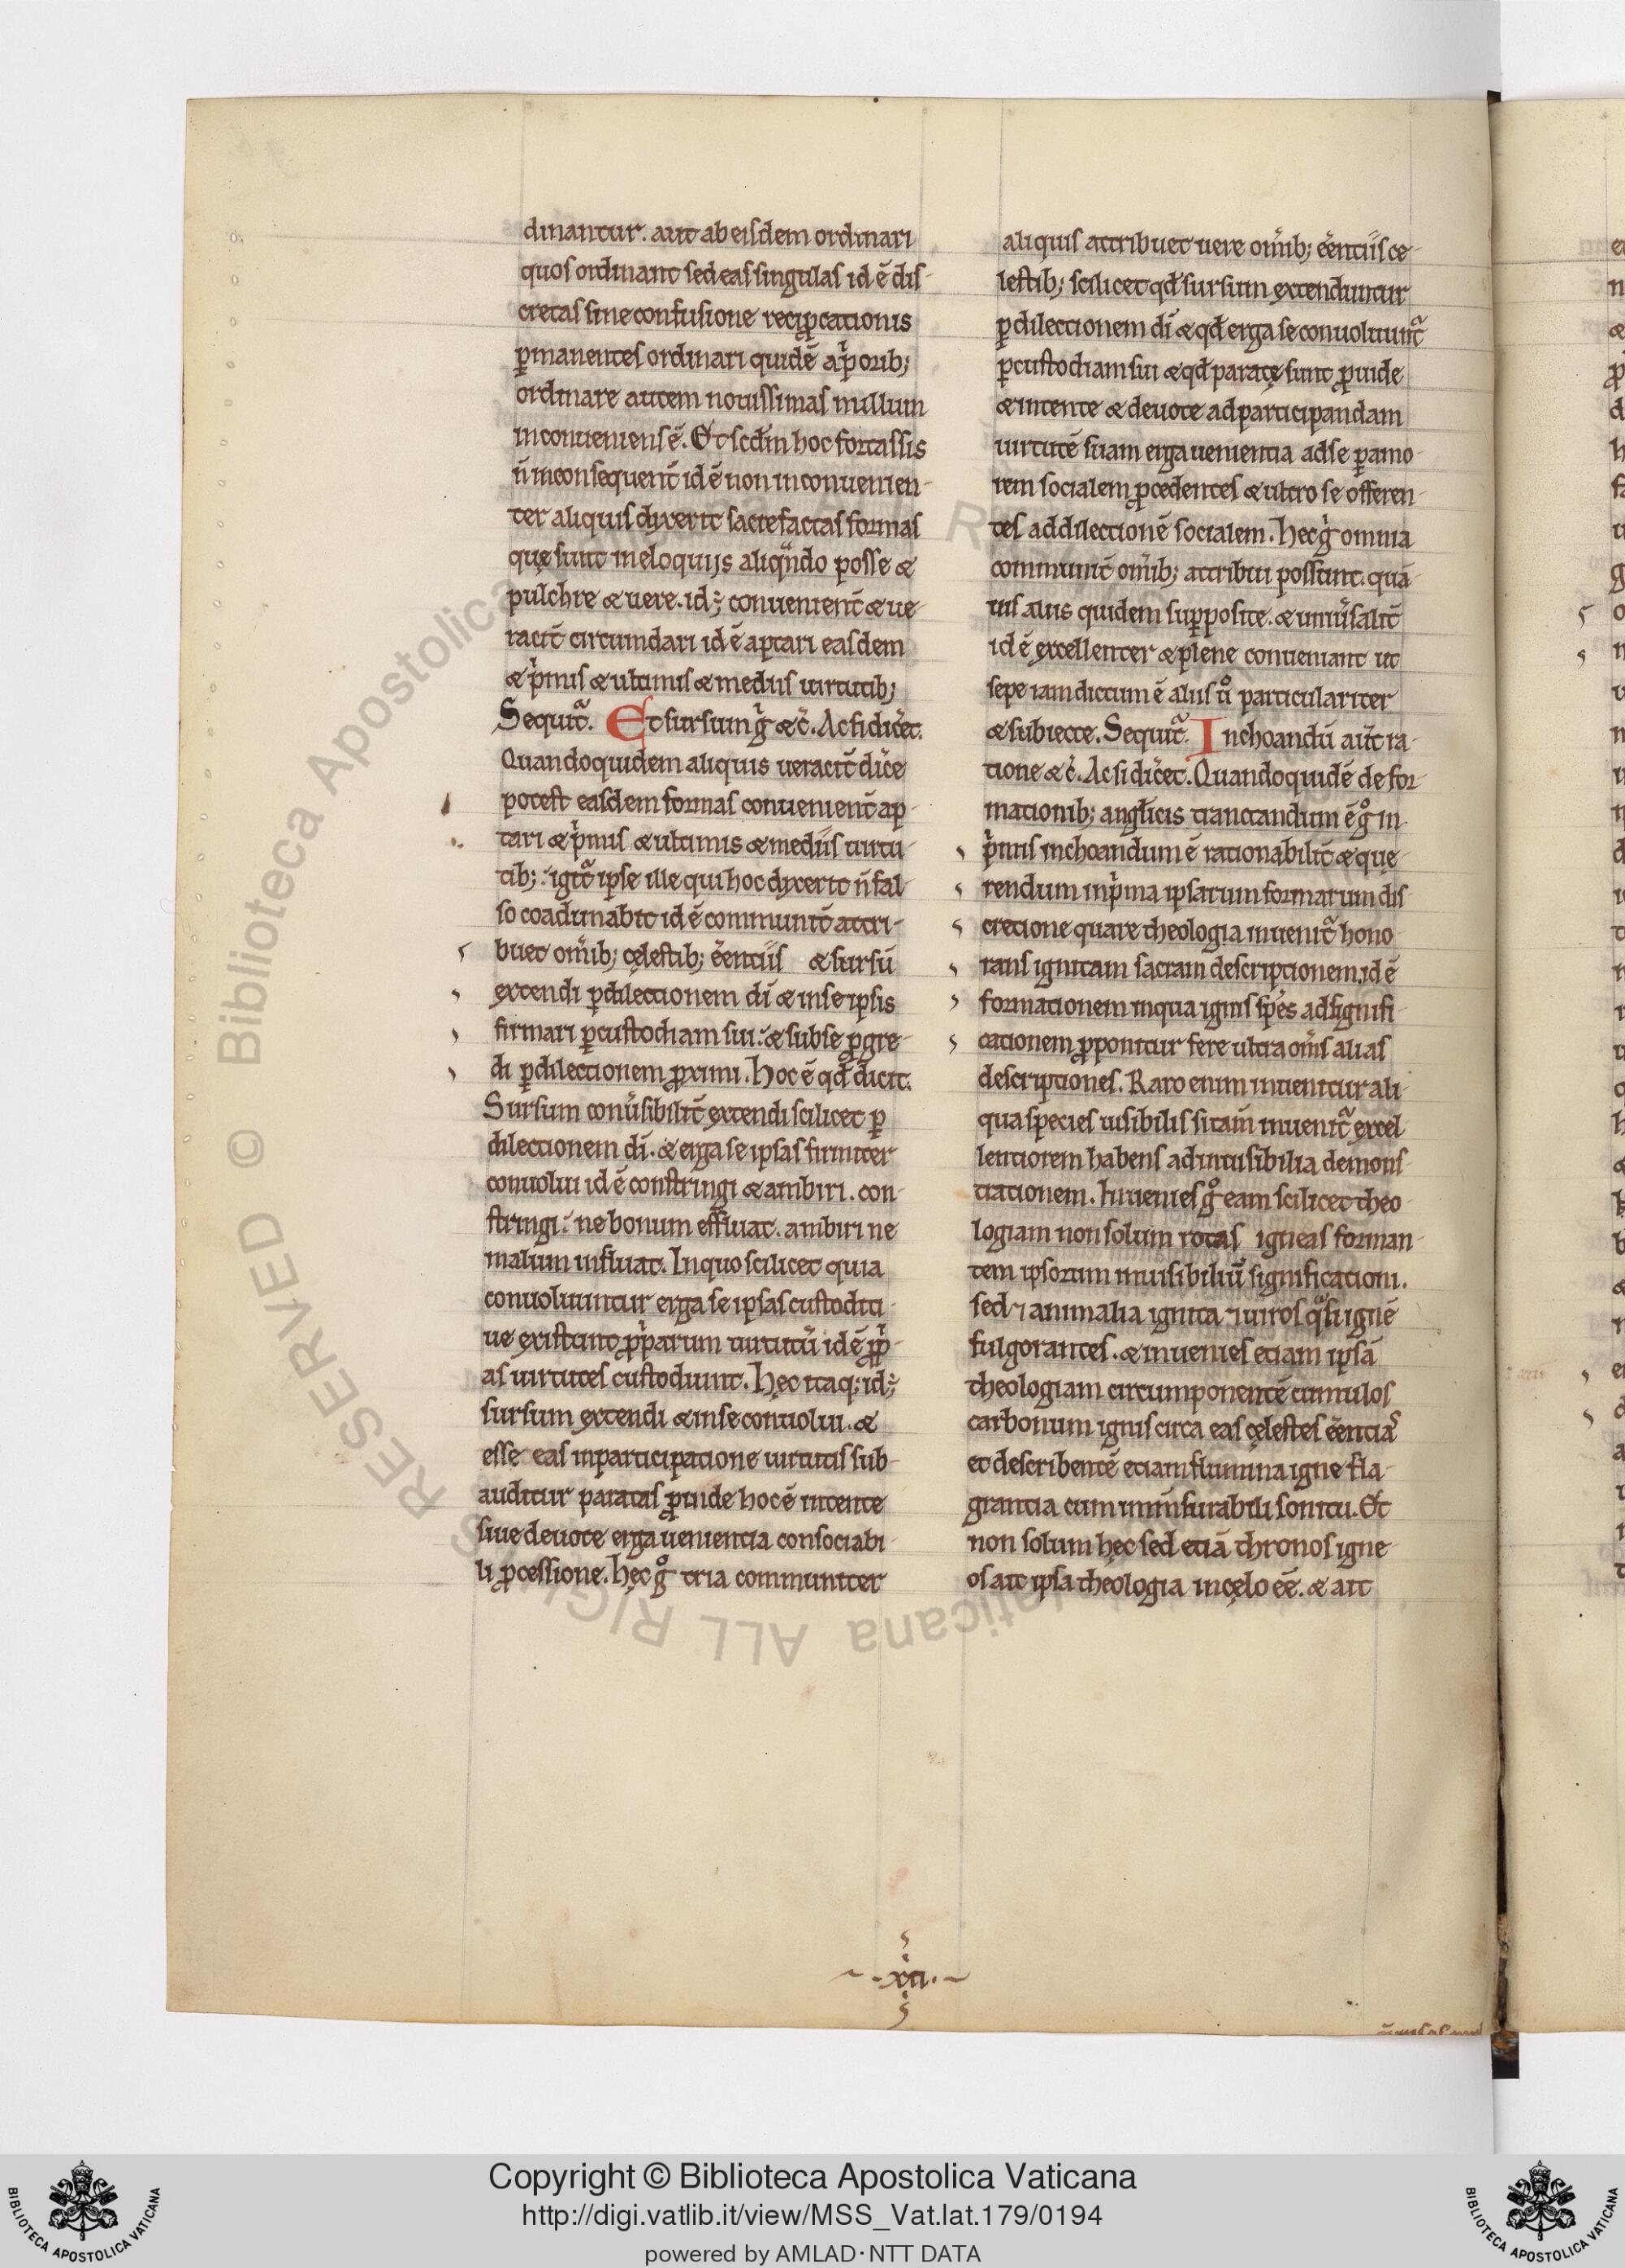 dinantur. aut ab eisdem ordinari
quos ordinant sed eas singulas id ē dis-
cretas sine confusione reciꝓcationis
ꝑmanentes ordinari quidē a pͥorib;
ordinare autem nouissimas nullum
inconueniens ē. Et scd̄m hoc fortassis
n̄ inconsequent̄ id ē non inconuenien-
ter aliquis dixerit sacrefactas formas
quę sunt in eloquiis aliqͣndo posse &
pulchre & uere. id ÷ conuenient̄ & ue-
racit̄ circumdari id ē aptari easdem
& pͥmis & ultimis & mediis uirtutib;
Sequit᷑. Et sursum gͥ &c̄. Ac si dic̄et.
Quandoquidem aliquis ueracit̄ dic̄e
potest easdem formas conuenient̄ ap-
tari & pͥmis & ultimis & mediis uirtu-
tib; igit᷑ ipse ille qui hoc dixerit n̄ fal-
so coadunabit id ē communit̄ attri-
buet om̄ib; cęlestib; ēentiis & sursū
extendi ꝑ dilectionem dī & in se ipsis
firmari ꝑ custodiam sui. & sub se ꝓgre-
di ꝑ dilectionem ꝓximi. Hoc ē qđ dicit.
Sursum conūsibilit̄ extendi scilicet ꝑ
dilectionem dī. & erga se ipsas firmiter
conuolui id ē constringi & ambiri. con-
stringi. ne bonum effluat. ambiri ne
malum influat. In quo scilicet quia
conuoluuntur erga se ipsas custoditi-
ue existunt ꝓpͥarum uirtutū id ē ꝓpͥ-
as uirtutes custodiunt. Hęc itaq; id ÷
sursum extendi & in se conuolui. &
esse eas in participatione uirtutis sub-
auditur paratas ꝓuide hoc ē intente
siue deuote erga uenientia consociabi-
li ꝓcessione. hęc gͦ tria communiter
aliquis attribuet uere om̄ib; ēentiis ce-
lestib; scilicet qđ sursum extenduntur
ꝑ dilectionem dī & qđ erga se conuoluunt᷑
ꝑ custodiam sui & qđ paratę sunt ꝓuide
& intente & deuote ad participandam
uirtutē suam erga uenientia ad se ꝑ amo-
rem socialem ꝓcedentes & ultro se offeren-
tes ad dilectionē socialem. hec gͥ omnia
communit̄ om̄ib; attribui possunt. quā-
uis aliis quidem suꝑposite. & uniūsalit̄
id ē excellenter & plene conueniant ut
sepe iam dictum ē aliis uͦ particulariter
& subiecte. Sequit᷑. Inchoandū aut̄ ra-
tione &c̄. Ac si dic̄et. Quandoquidē de for-
mationib; angl̄icis tractandum ē gͦ in
pͥmis inchoandum ē rationabilit̄ & quę-
rendum in pͥma ipsarum formarum dis-
cretione quare theologia inuenit᷑ hono-
rans ignitam sacram descriptionem. id ē
formationem in qua ignis sp̄es ad signifi-
cationem ꝓponitur fere ultra om̄s alias
descriptiones. Raro enim inuenitur ali-
qua species uisibilis si tam̄ inuenit᷑ excel-
lentiorem habens ad inuisibilia demons-
trationem. Inuenies gͦ eam scilicet theo-
logiam non solum rotas igneas forman-
tem ipsorum inuisibiliū significationi.
sed ⁊ animalia ignita ⁊ uiros qͣsi ignē
fulgorantes. & inuenies etiam ipsā
theologiam circumponentē cumulos
carbonum ignis circa eas cęlestes ēentias
et describentē etiam flumina igne fla-
grantia cum inm̄surabili sonitu. Et
non solum hęc sed etiā thronos igne-
os ait ipsa theologia in cęlo eē. & ait
.xii.
© Biblioteca Apostolica Vaticana ALL RIGHTS RESERVED
Copyright © Biblioteca Apostolica Vaticana
http://digi.vatlib.it/view/MSS_Vat.lat.179/0194
powered by AMLAD·NTT DATA
BIBLIOTECA APOSTOLICA VATICANA
BIBLIOTECA APOSTOLICA VATICANA